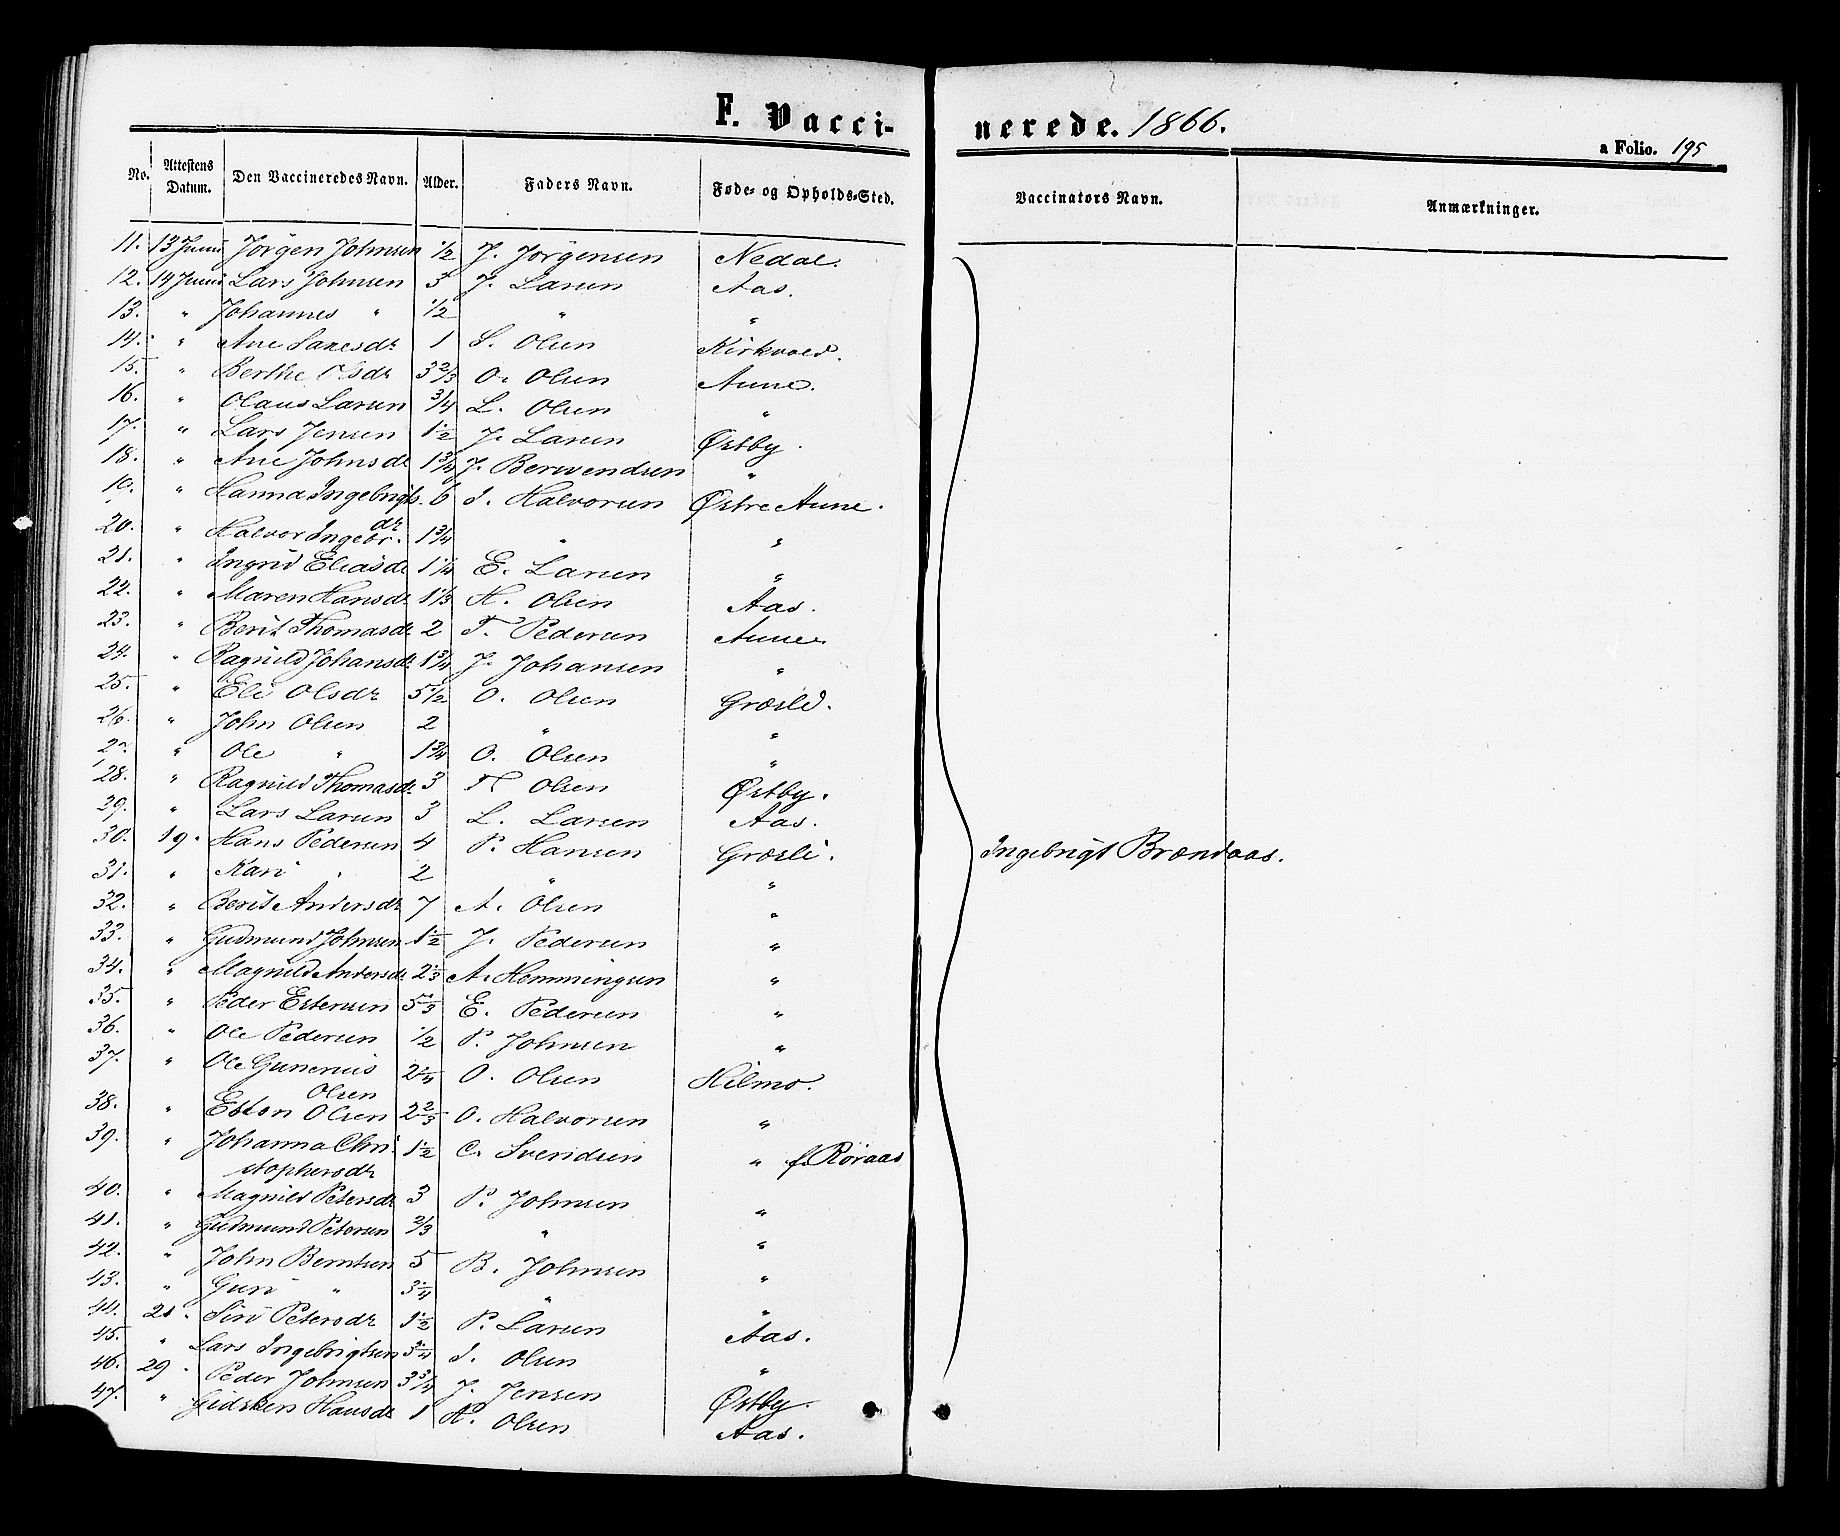 F. Vaccinerede. 1866.
a Folio. 195
No. Attestens Datum. Den Vaccineredes Navn. Alder. Faders Navn. Føde- og Opholds-Sted. Vaccinators Navn. Anmærkninger.
11. 13 Juni Jörgen Johnsen 1/2 J. Jörgensen Nedal.
12. 14 Juni Lars Johnsen 3 J. Larsen Aas.
13. " Johannes " 1/2 " "
14. " Ane Larsdr 1 L. Olsen Kirkvold.
15. " Berthe Olsdr 3 2/3 O. Olsen Aune.
16. " Olaus Larsen 3/4 L. Olsen "
17. " Lars Jensen 1 1/2 J. Larsen Østby.
18. " Ane Johnsdr 1 3/4 J. Berwendsen "
19. " Hanna Ingebrigts. dr 6 I. Halvorsen Østre Aune.
20. " Halvor Ingebr. 1 3/4 " "
21. " Ingrid Eliasdr 1 1/4 E. Larsen "
22. " Maren Hansdr 1 1/3 H. Olsen Aas.
23. " Berit Thomasdr 2 T. Pedersen Aune.
24. " Ragnild Johansdr 1 3/4 J. Johansen "
25. " Eli Olsdr 5 1/2 O. Olsen Græsld.
26. " John Olsen 2 " "
27. " Ole " 1 3/4 O. Olsen "
28. " Ragnild Thomasdr 3 T. Olsen Østby.
29. " Lars Larsen 3 L. Larsen Aas.
30. 19. Hans Pedersen 4 P. Hansen Græsli. Ingebrigt Brændaas.
31. " Kari " 2 " "
32. " Berit Andersdr 7 A. Olsen "
33. " Gudmund Johnsen 1 1/2 J. Pedersen "
34. " Magnild Andersdr 2 1/3 A. Hemmingsen "
35. " Peder Estensen 5 1/3 E. Pedersen "
36. " Ole Pedersen 1/2 P. Johnsen "
37. " Ole Gunerius 2 1/4 O. Olsen Hilmo.
Olsen
38. " Esten Olsen 2 2/3 O. Halvorsen "
39. " Johanna Chri 1 1/2 C. Svendsen " f. Røraas
stophersdr
40. " Magnild Petersdr 3 P. Johnsen "
41. " Gudmund Petersen 2/3 " "
42. " John Berntsen 5 B. Johnsen "
43. " Guri " 3 1/4 " "
44. 21. Siri Petersdr 1 1/2 P. Larsen Aas.
45. " Lars Ingebrigtsen 3/4 I. Olsen "
46. 29. Peder Johnsen 3 3/4 J. Jensen Østby.
47. " Gidsken Hansdr 1 H. Olsen Aas.